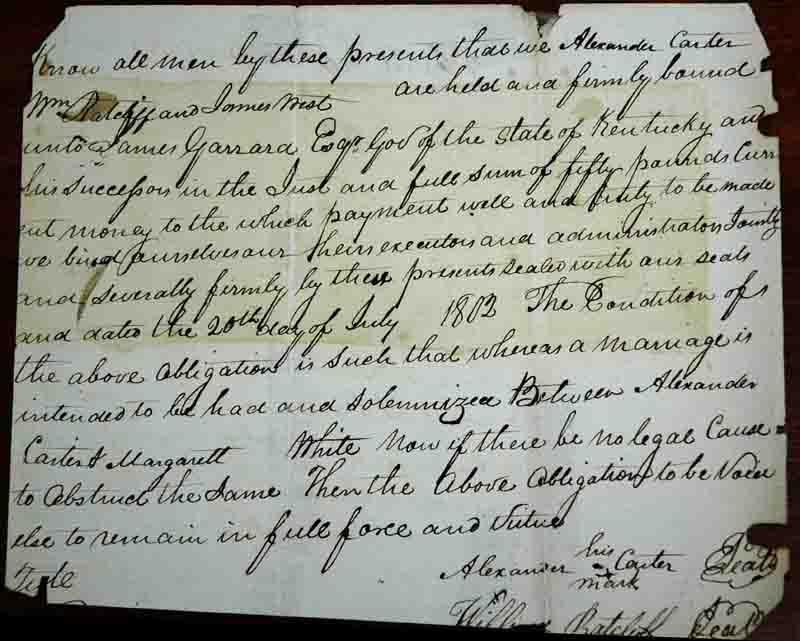 Know all men by these presents that we Alexander Carter
Wm Ratcliff and James West are held and firmly bound
unto James Garrard Esqr Gov of the State of Kentucky and
his Successors in the Just and full sum of fifty pounds Curr
ent money to the which payment well and truly to be made
we bind ourselves our heirs executors and administrators Jointly
and severally firmly by these presents sealed with our seals
and dated the 20th day of July 1802 The Condition of
the above obligation is such that whereas a marriage is
intended to be had and solemnized Between Alexander
Carter & Margarett White Now if there be no legal Cause
to obstruct the same Then the above obligation to be Void
else to remain in full force and Virtue
Teste Alexander his Carter Seal
mark
William Ratcliff Seal